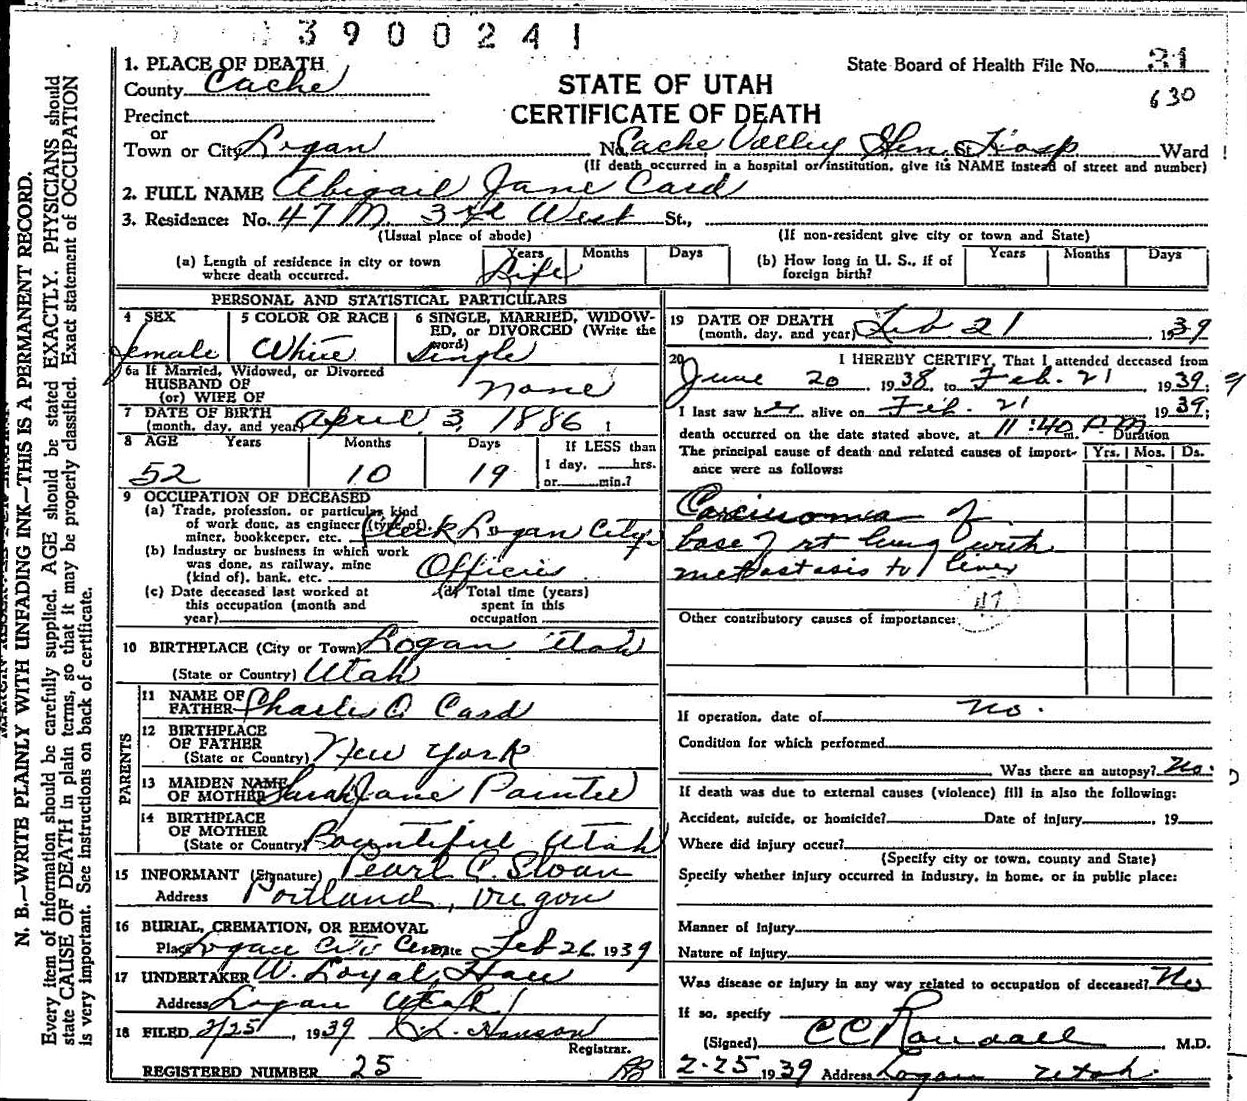 3900241
1. PLACE OF DEATH
County Cache
State Board of Health File No. 31
630
STATE OF UTAH
CERTIFICATE OF DEATH
Precinct
or
Town or City Logan No. Cache Valley Gen. Hosp St. Ward
(If death occurred in a hospital or institution, give its NAME instead of street and number)
2. FULL NAME Abigail Jane Card
3. Residence: No. 47 M. 3rd West St.,
(Usual place of abode) (If non-resident give city or town and State)
(a) Length of residence in city or town where death occurred. Years Life Months Days
(b) How long in U. S., if of foreign birth? Years Months Days
PERSONAL AND STATISTICAL PARTICULARS
4 SEX female
5 COLOR OR RACE White
6 SINGLE, MARRIED, WIDOWED, or DIVORCED (Write the word) Single
6a If Married, Widowed, or Divorced
HUSBAND OF
(or) WIFE OF none
7 DATE OF BIRTH
(month, day, and year) April 3, 1886
8 AGE Years Months Days If LESS than
52 10 19 1 day, hrs.
or min.?
9 OCCUPATION OF DECEASED
(a) Trade, profession, or particular kind
of work done, as engineer (type of),
miner, bookkeeper, etc. Clerk Logan City
(b) Industry or business in which work
was done, as railway, mine
(kind of), bank, etc. Offices
(c) Date deceased last worked at
this occupation (month and
year)
(d) Total time (years)
spent in this
occupation
10 BIRTHPLACE (City or Town) Logan Utah
(State or Country) Utah
PARENTS
11 NAME OF
FATHER Charles O. Card
12 BIRTHPLACE
OF FATHER
(State or Country) New York
13 MAIDEN NAME
OF MOTHER Sarah Jane Painter
14 BIRTHPLACE
OF MOTHER
(State or Country) Bountiful Utah
15 INFORMANT (Signature) Pearl C. Sloan
Address Portland, Oregon
16 BURIAL, CREMATION, OR REMOVAL
Place Logan City Cem Date Feb 26, 1939
17 UNDERTAKER W. Loyal Hall
Address Logan Utah
18 FILED 2/25, 1939
Hanson
Registrar.
REGISTERED NUMBER 25
19 DATE OF DEATH
(month, day, and year) Feb 21 1939
20 I HEREBY CERTIFY, That I attended deceased from
June 20 1938, to Feb. 21 1939;
I last saw her alive on Feb. 21 1939;
death occurred on the date stated above, at 11:40 P.M. m.
Duration
The principal cause of death and related causes of importance were as follows: Yrs. Mos. Ds.
Carcinoma of
base of rt lung with
metastasis to liver
47
Other contributory causes of importance:
If operation, date of no.
Condition for which performed
Was there an autopsy? No.
If death was due to external causes (violence) fill in also the following:
Accident, suicide, or homicide? Date of injury, 19
Where did injury occur?
(Specify city or town, county and State)
Specify whether injury occurred in industry, in home, or in public place:
Manner of Injury
Nature of Injury
Was disease or injury in any way related to occupation of deceased? No
If so, specify
(Signed) C C Randall, M.D.
2-25 1939 Address Logan Utah.
N. B.—WRITE PLAINLY WITH UNFADING INK—THIS IS A PERMANENT RECORD.
Every item of information should be carefully supplied. AGE should be stated EXACTLY. PHYSICIANS should
state CAUSE OF DEATH in plain terms, so that it may be properly classified. Exact statement of OCCUPATION
is very important. See instructions on back of certificate.